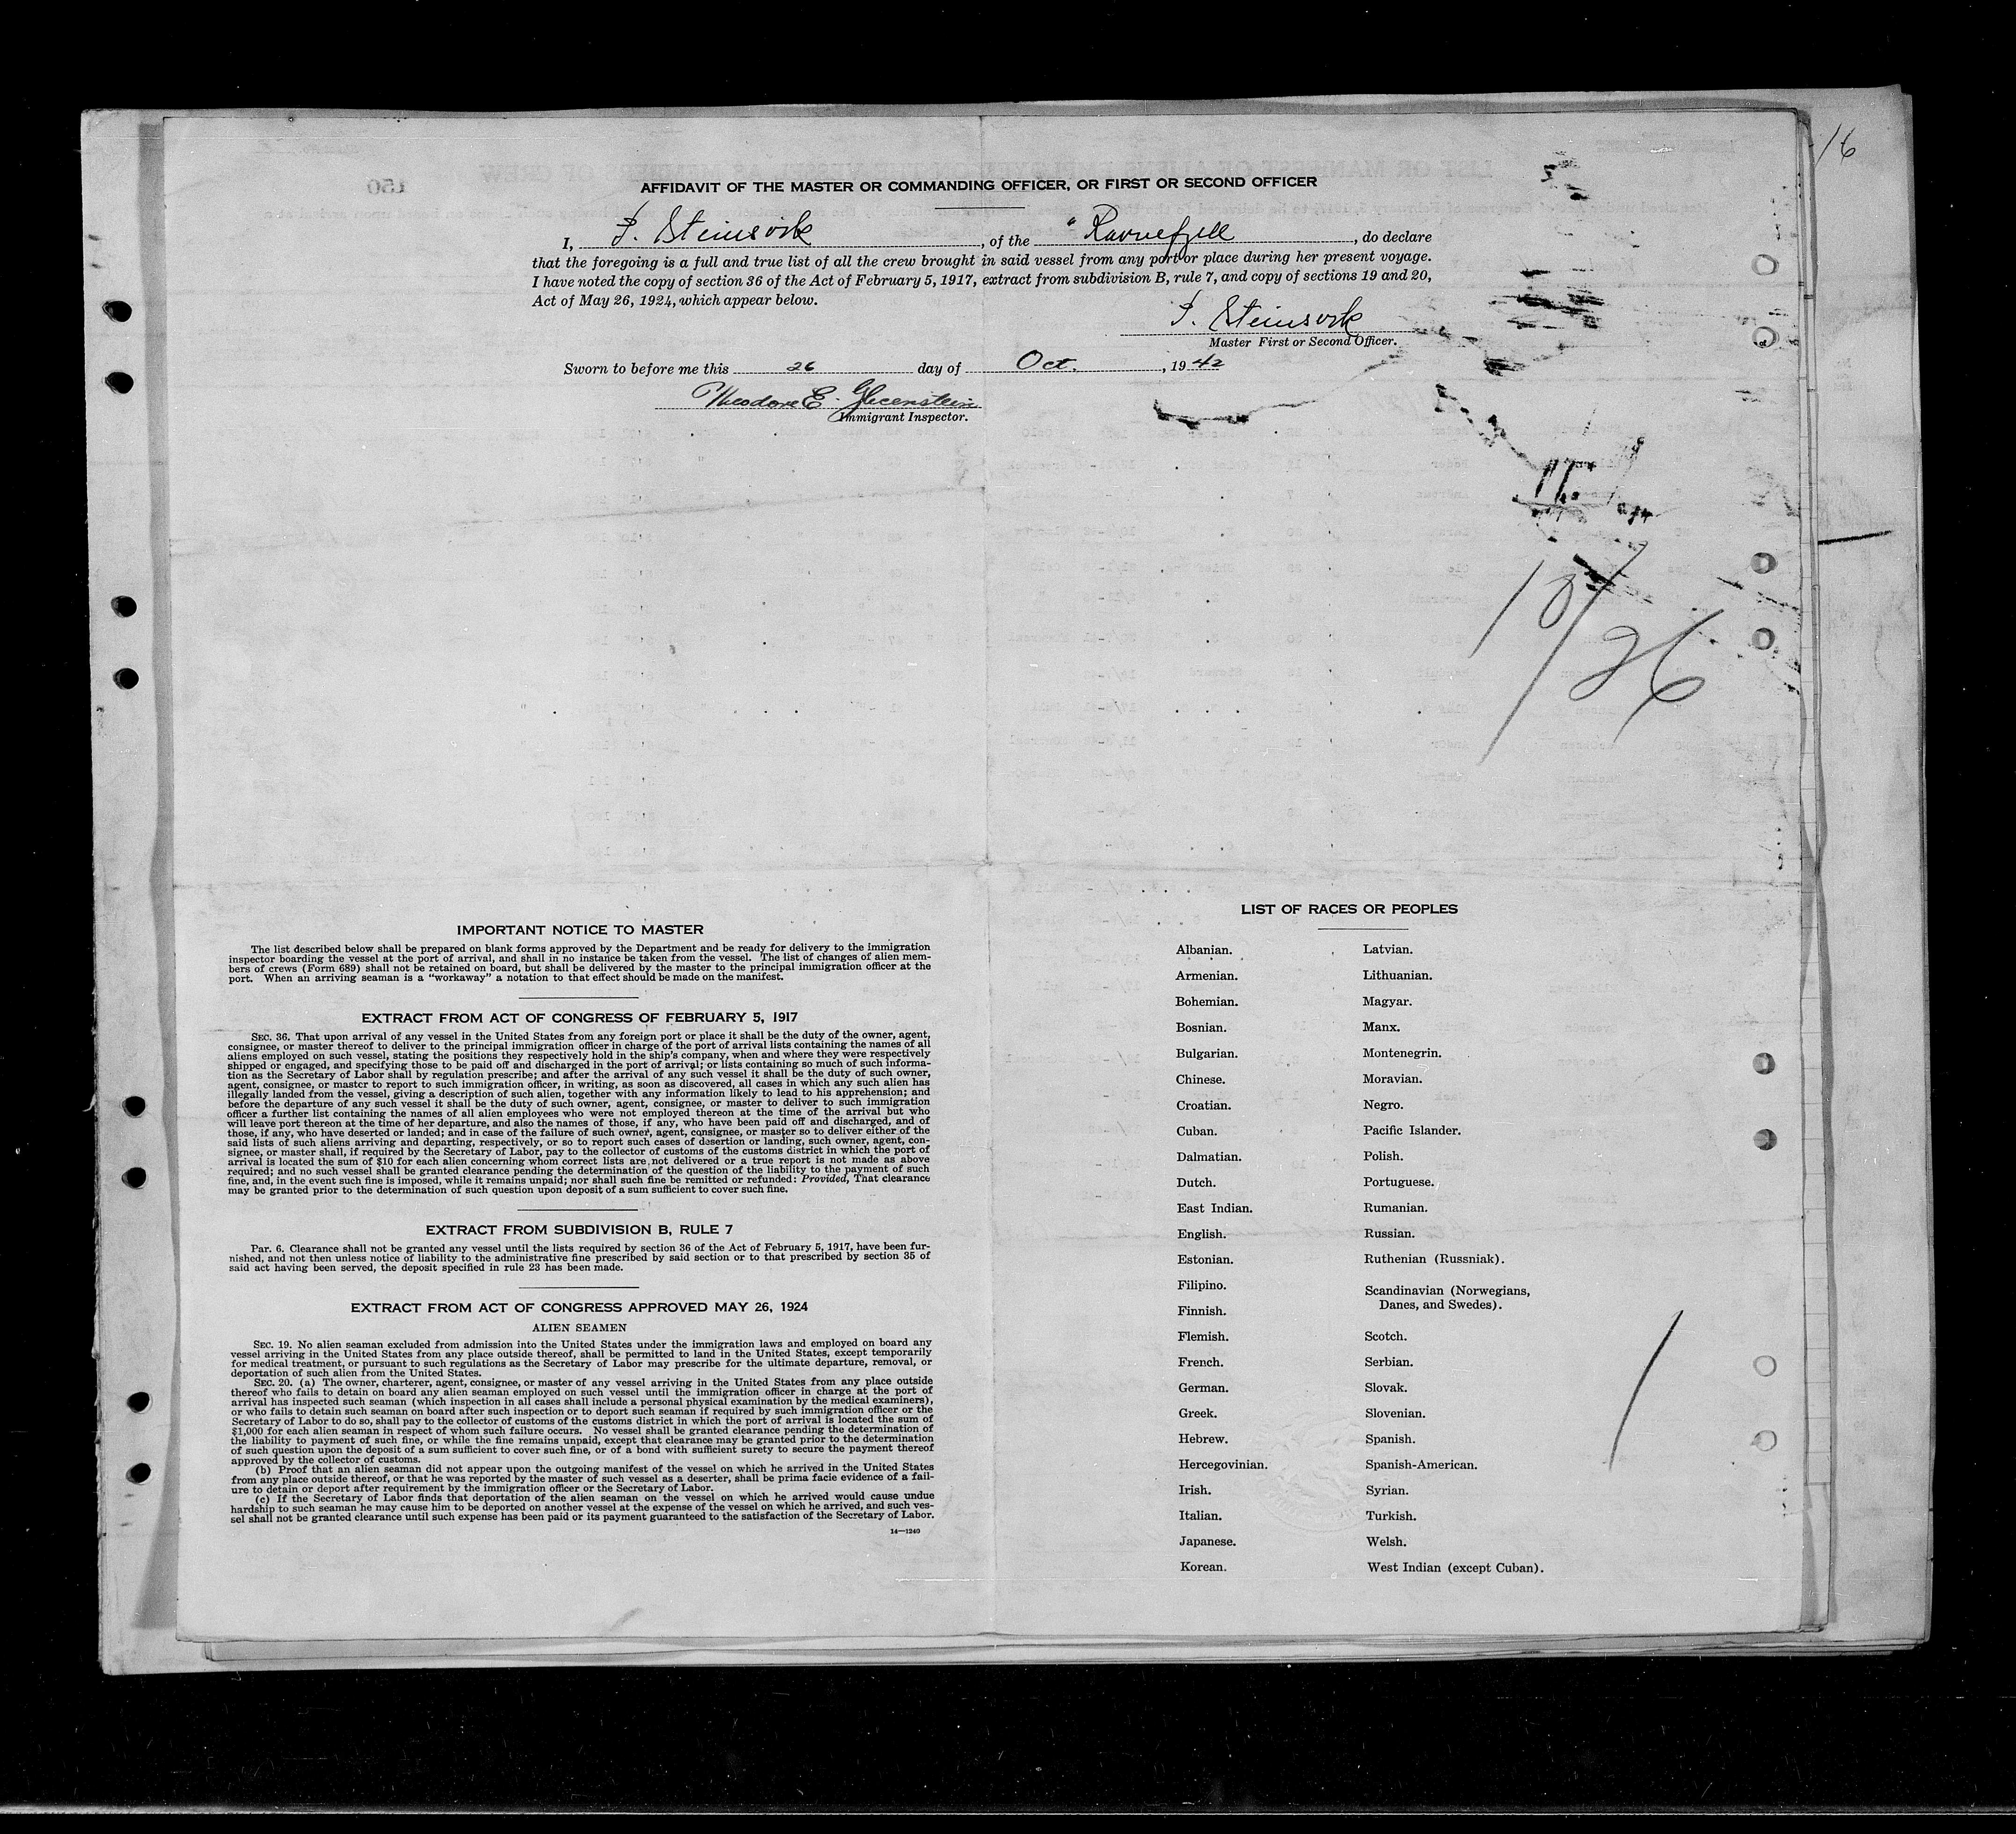 16
AFFIDAVIT OF THE MASTER OR COMMANDING OFFICER, OR FIRST OR SECOND OFFICER
I, Steinsvik, of the "Ravnefjell, do declare
that the foregoing is a full and true list of all the crew brought in said vessel from any port or place during her present voyage.
I have noted the copy of section 36 of the Act of February 5, 1917, extract from subdivision B, rule 7, and copy of sections 19 and 20,
Act of May 26, 1924, which appear below.
Steinsvik
Master First or Second Officer.
Sworn to before me this 26 day of Oct., 1942
Theodore E.
Immigrant Inspector.
10/26
IMPORTANT NOTICE TO MASTER
The list described below shall be prepared on blank forms approved by the Department and be ready for delivery to the immigration
inspector boarding the vessel at the port of arrival, and shall in no instance be taken from the vessel. The list of changes of alien mem-
bers of crews (Form 689) shall not be retained on board, but shall be delivered by the master to the principal immigration officer at the
port. When an arriving seaman is a "workaway" a notation to that effect should be made on the manifest.
EXTRACT FROM ACT OF CONGRESS OF FEBRUARY 5, 1917
SEC. 36. That upon arrival of any vessel in the United States from any foreign port or place it shall be the duty of the owner, agent,
consignee, or master thereof to deliver to the principal immigration officer in charge of the port of arrival lists containing the names of all
aliens employed on such vessel, stating the positions they respectively hold in the ship's company, when and where they were respectively
shipped or engaged, and specifying those to be paid off and discharged in the port of arrival; or lists containing so much of such informa-
tion as the Secretary of Labor shall by regulation prescribe; and after the arrival of any such vessel it shall be the duty of such owner,
agent, consignee, or master to report to such immigration officer, in writing, as soon as discovered, all cases in which any such alien has
illegally landed from the vessel, giving a description of such alien, together with any information likely to lead to his apprehension; and
before the departure of any such vessel it shall be the duty of such owner, agent, consignee, or master to deliver to such immigration
officer a further list containing the names of all alien employees who were not employed thereon at the time of the arrival but who
will leave port thereon at the time of her departure, and also the names of those, if any, who have been paid off and discharged, and of
those, if any, who have deserted or landed; and in case of the failure of such owner, agent, consignee, or master so to deliver either of the
said lists of such aliens arriving and departing, respectively, or so to report such cases of desertion or landing, such owner, agent, con-
signee, or master shall, if required by the Secretary of Labor, pay to the collector of customs of the customs district in which the port of
arrival is located the sum of $10 for each alien concerning whom correct lists are not delivered or a true report is not made as above
required; and no such vessel shall be granted clearance pending the determination of the question of the liability to the payment of such
fine, and, in the event such fine is imposed, while it remains unpaid; nor shall such fine be remitted or refunded: Provided, That clearance
may be granted prior to the determination of such question upon deposit of a sum sufficient to cover such fine.
EXTRACT FROM SUBDIVISION B, RULE 7
Par. 6. Clearance shall not be granted any vessel until the lists required by section 36 of the Act of February 5, 1917, have been fur-
nished, and not then unless notice of liability to the administrative fine prescribed by said section or to that prescribed by section 35 of
said act having been served, the deposit specified in rule 23 has been made.
EXTRACT FROM ACT OF CONGRESS APPROVED MAY 26, 1924
ALIEN SEAMEN
SEC. 19. No alien seaman excluded from admission into the United States under the immigration laws and employed on board any
vessel arriving in the United States from any place outside thereof, shall be permitted to land in the United States, except temporarily
for medical treatment, or pursuant to such regulations as the Secretary of Labor may prescribe for the ultimate departure, removal, or
deportation of such alien from the United States.
SEC. 20. (a) The owner, charterer, agent, consignee, or master of any vessel arriving in the United States from any place outside
thereof who fails to detain on board any alien seaman employed on such vessel until the immigration officer in charge at the port of
arrival has inspected such seaman (which inspection in all cases shall include a personal physical examination by the medical examiners),
or who fails to detain such seaman on board after inspection or to deport such seaman if required by such immigration officer or the
Secretary of Labor to do so, shall pay to the collector of customs of the customs district in which the port of arrival is located the sum of
$1,000 for each alien seaman in respect of whom such failure occurs. No vessel shall be granted clearance pending the determination of
the liability to payment of such fine, or while the fine remains unpaid, except that clearance may be granted prior to the determination
of such question upon the deposit of a sum sufficient to cover such fine, or of a bond with sufficient surety to secure the payment thereof
approved by the collector of customs.
(b) Proof that an alien seaman did not appear upon the outgoing manifest of the vessel on which he arrived in the United States
from any place outside thereof, or that he was reported by the master of such vessel as a deserter, shall be prima facie evidence of a fail-
ure to detain or deport after requirement by the immigration officer or the Secretary of Labor.
(c) If the Secretary of Labor finds that deportation of the alien seaman on the vessel on which he arrived would cause undue
hardship to such seaman he may cause him to be deported on another vessel at the expense of the vessel on which he arrived, and such ves-
sel shall not be granted clearance until such expense has been paid or its payment guaranteed to the satisfaction of the Secretary of Labor.
14—1240
LIST OF RACES OR PEOPLES
Albanian.
Armenian.
Bohemian.
Bosnian.
Bulgarian.
Chinese.
Croatian.
Cuban.
Dalmatian.
Dutch.
East Indian.
English.
Estonian.
Filipino.
Finnish.
Flemish.
French.
German.
Greek.
Hebrew.
Hercegovinian.
Irish.
Italian.
Japanese.
Korean.
Latvian.
Lithuanian.
Magyar.
Manx.
Montenegrin.
Moravian.
Negro.
Pacific Islander.
Polish.
Portuguese.
Rumanian.
Russian.
Ruthenian (Russniak).
Scandinavian (Norwegians,
Danes, and Swedes).
Scotch.
Serbian.
Slovak.
Slovenian.
Spanish.
Spanish-American.
Syrian.
Turkish.
Welsh.
West Indian (except Cuban).